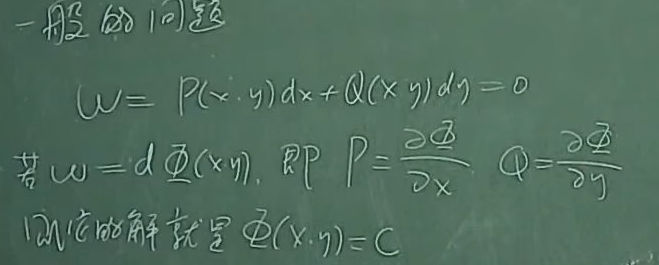 一般的问题
ω= P(x,y)dx+Q(x y)dy=0
若ω=dΦ(x y), 即 P=∂Φ/∂x Q=∂Φ/∂y
则它的解就是Φ(x,y)=C